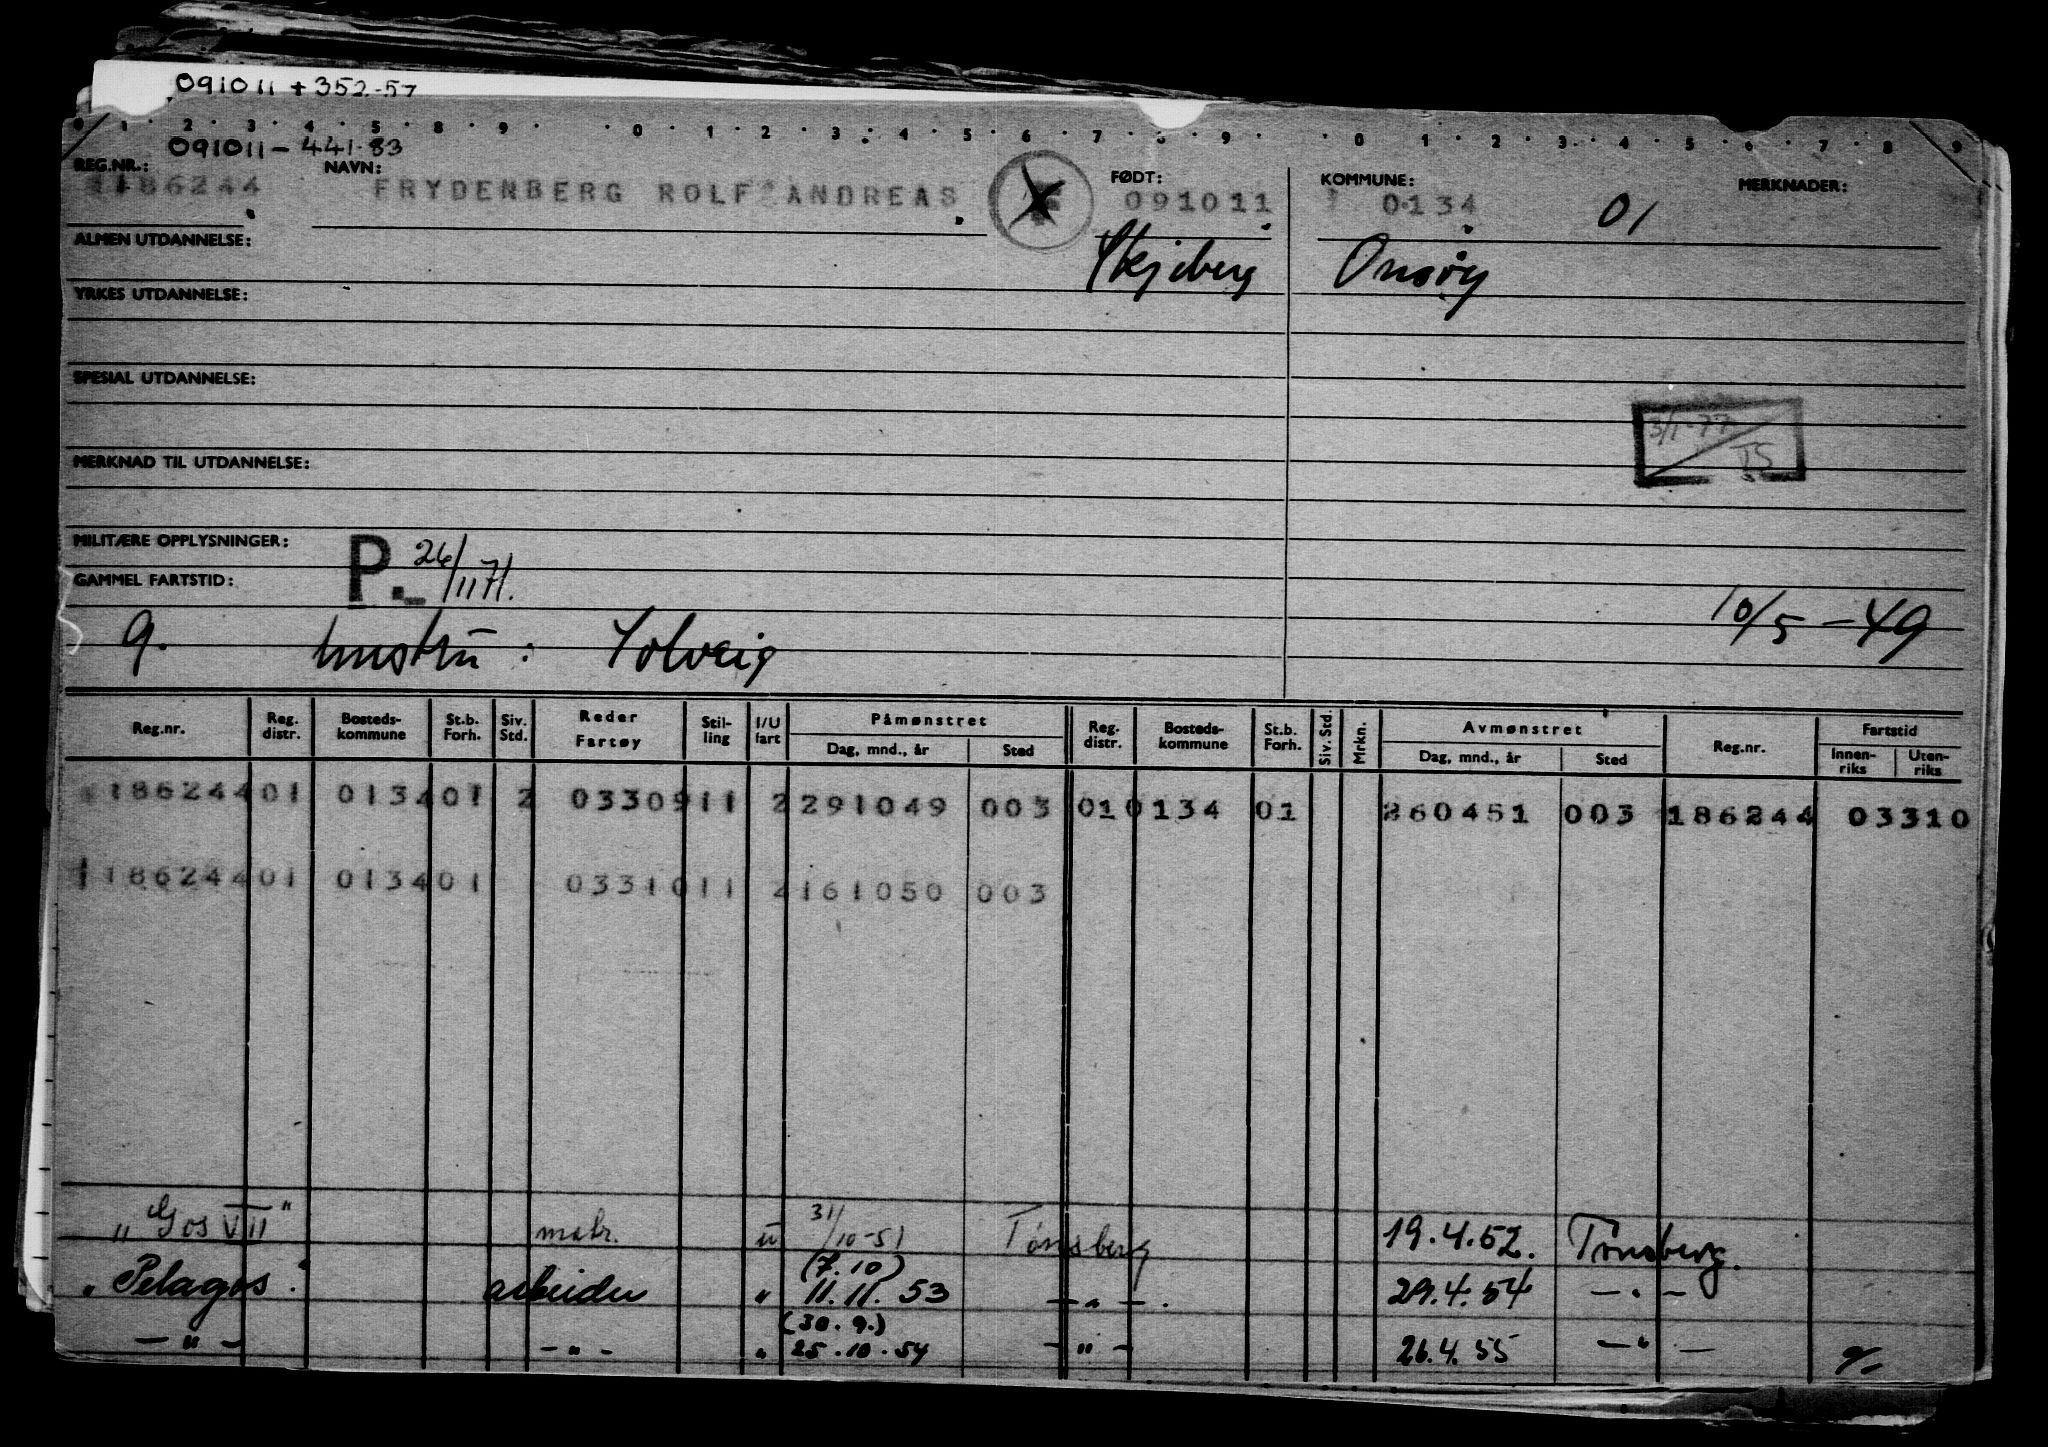 091011 + 352-57
0 1 2 3 4 5 8 9 0 1 2 3 4 5 6 7 8 9 0 1 2 3 4 5 6 7 8 9
091011 - 441-83
REG.NR.: NAVN: FØDT: KOMMUNE: MERKNADER:
186244 FRYDENBERG ROLF ANDREAS 091011 0134 01
ALMEN UTDANNELSE: Skjeberg Onsøy
YRKES UTDANNELSE:
SPESIAL UTDANNELSE:
3/1-77
MERKNAD TIL UTDANNELSE:
MILITÆRE OPPLYSNINGER: P. 26/11 71.
GAMMEL FARTSTID:
g. hustru: Solveig 10/5-49
Reg.nr. Reg. distr. Bosteds-kommune St.b. Forh. Siv. Std. Reder Fartøy Stil-ling I/U fart Påmønstret Dag, mnd., år Sted Reg. distr. Bosteds-kommune St.b. Forh. Siv. Std. Mrkn. Avmønstret Dag, mnd., år Sted Reg.nr. Fartstid Innen-riks Uten-riks
1186244 01 0134 01 2 03309 11 2 291049 003 01 0134 01 260451 003 186244 03310
1186244 01 0134 01 03310 11 2 161050 003
"Gos VII" matr. u 31/10-51 Tønsberg 19.4.52. Tønsberg.
(7.10)
"Pelagos". arbeider " 11.11.53 — " — . 29.4.54 — " —
(30.9.)
— " — — " — " 25.10.54 — " — 26.4.55 — " —